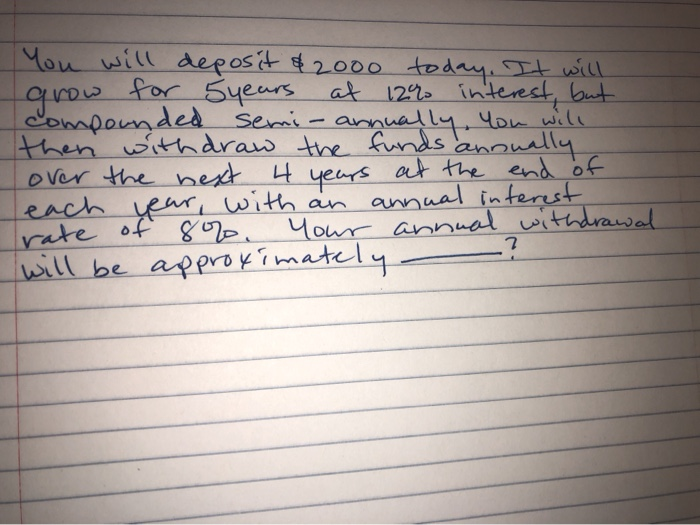 You will deposit $2000 today. It will
grow for 5years at 12% interest, but
compounded semi-annually. You will
then withdraw the funds annually
over the next 4 years at the end of
each year, with an annual interest
rate of 8%. Your annual withdrawal
will be approximately ______?